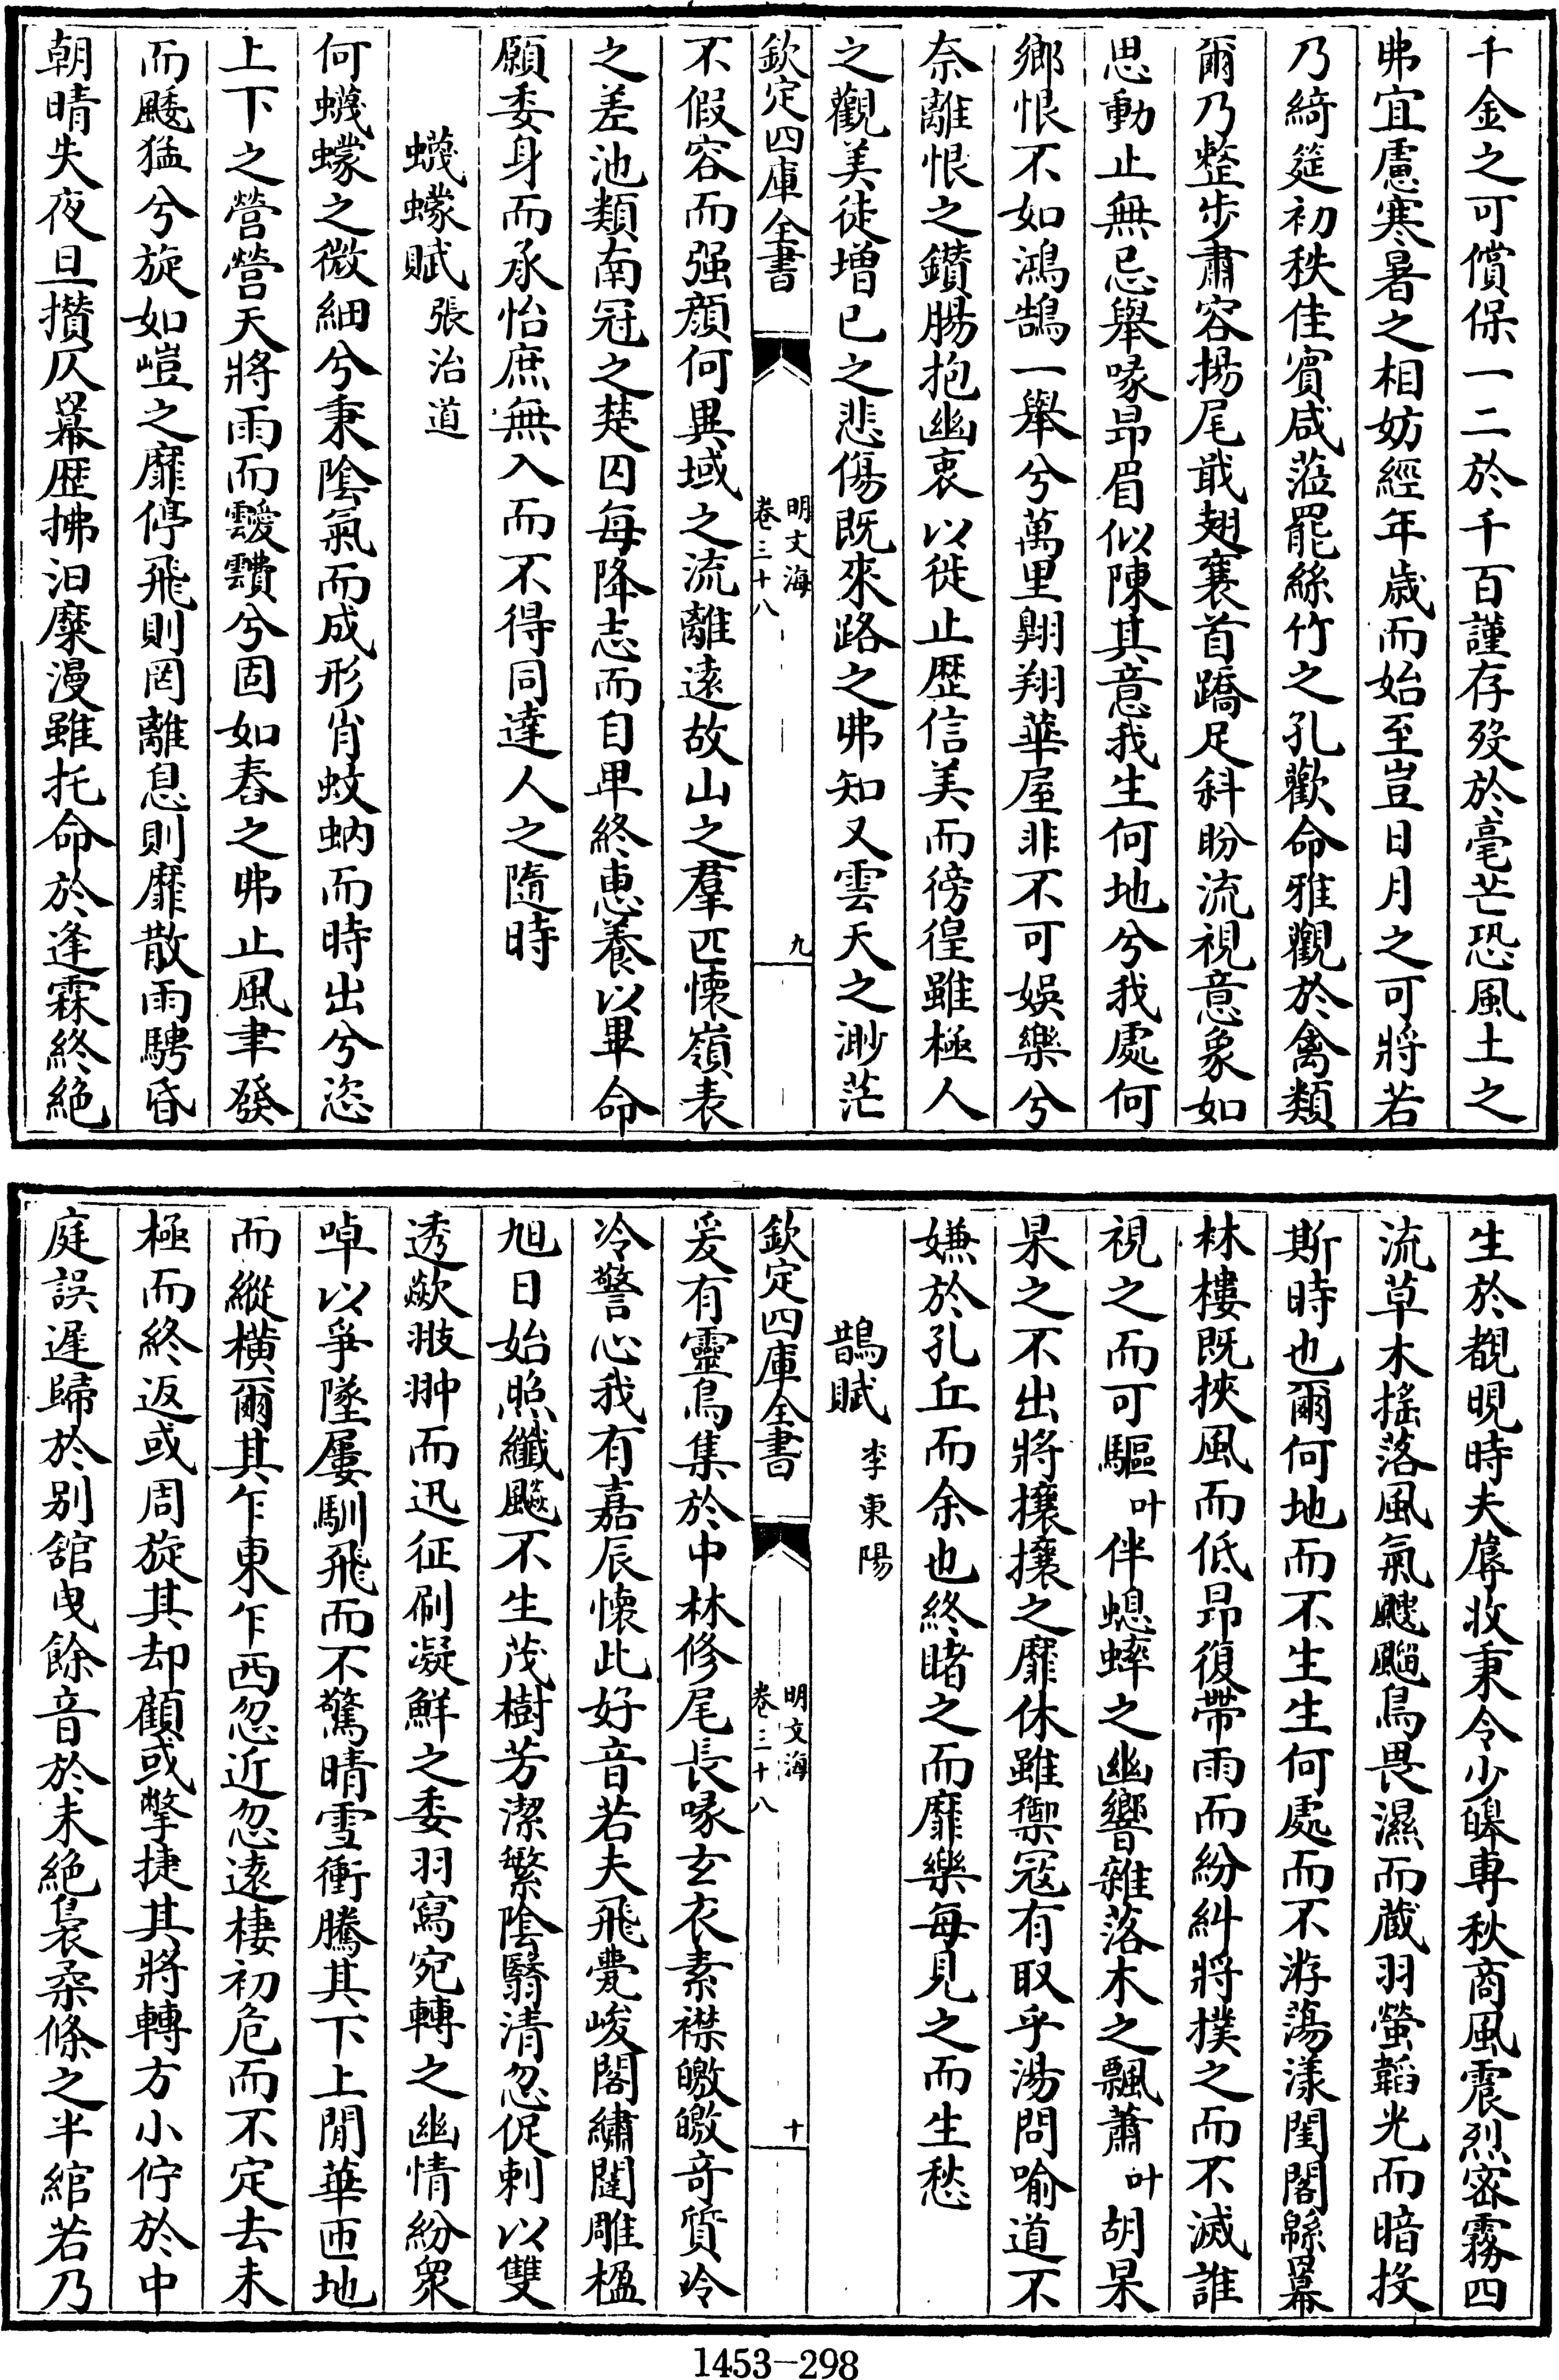 千金之可償保一二於千百謹存歿於毫芒恐風土之
弗宜慮寒暑之相妨經年歲而始至豈日月之可將若
乃綺筵初秩佳賓咸蒞罷絲竹之孔歡命雅觀於禽類
爾乃整步肅容揚尾戢翅褰首蹻足斜盼流視意象如
思動止無忌舉喙昂眉似陳其意我生何地兮我處何
鄉恨不如鴻鵠一舉兮萬里翺翔華屋非不可娛樂兮
奈離恨之鑚腸抱幽衷以徙止歷信美而徬徨雖極人
之觀美徒增已之悲傷既來路之弗知又雲天之渺茫
欽定四庫全書
明文海
卷三十八
九
不假容而强顔何異域之流離遠故山之羣匹懷嶺表
之差池類南冠之楚囚每降志而自卑終惠養以畢命
願委身而承怡庶無入而不得同達人之隨時
蠛蠓賦張治道
何蠛蠓之微細兮秉陰氣而成形肖蚊蚋而時出兮恣
上下之營營天將雨而靉靅兮固如舂之弗止風聿發
而颾猛兮旋如嵦之靡停飛則罔離息則靡散雨騁昏
朝晴失夜旦攅仄幕歴拂汨縻漫雖托命於逢霖終絶
生於覩晛時夫蓐收秉令少皞専秋商風震烈密霧四
流草木揺落風氣颼飀鳥畏濕而蔵羽螢韜光而暗投
斯時也爾何地而不生生何處而不游蕩漾閨閣緜羃
林樓既挾風而低昂復帶雨而紛糾將撲之而不滅誰
視之而可驅叶伴蟋蟀之幽響雜落木之飄蕭叶胡杲
杲之不出將攘攘之靡休雖禦冦有取乎湯問喻道不
嫌於孔丘而余也終睹之而靡樂每見之而生愁
鵲賦李東陽
欽定四庫全書
明文海
卷三十八
十
爰有靈鳥集於中林修尾長喙玄衣素襟皦皦竒質泠
泠警心我有嘉辰懷此好音若夫飛甍峻閣繡闥雕楹
旭日始照纖飈不生茂樹芳潔繁陰翳清忽促刺以雙
透歘翍翀而迅征刷凝鮮之委羽寫宛轉之幽情紛衆
啅以爭墜屢馴飛而不驚晴雪衝騰其下上閒華匝地
而縱橫爾其乍東乍西忽近忽遠棲初危而不定去未
極而終返或周旋其却顧或撆捷其將轉方小佇於中
庭誤遲歸於别舘曵餘音於未絶裊柔條之半綰若乃
1453-298